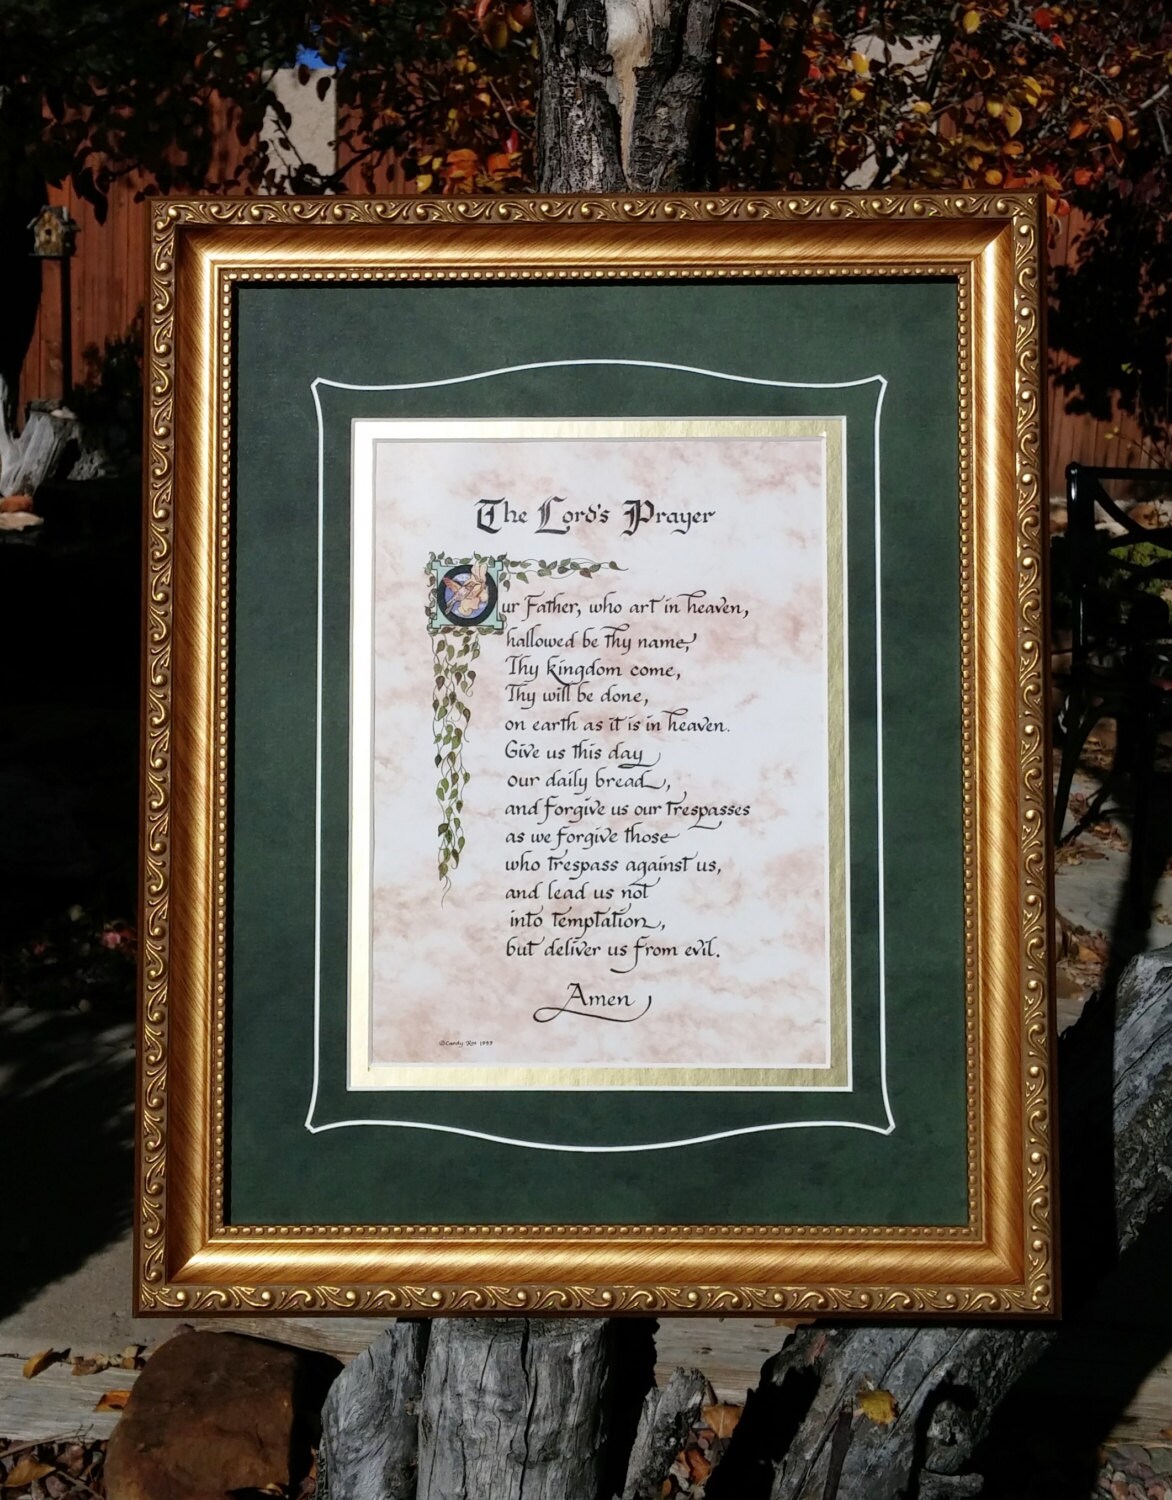 The Lord's Prayer
Our Father, who art in heaven,
hallowed be thy name,
Thy kingdom come,
Thy will be done,
on earth as it is in heaven.
Give us this day
our daily bread,
and forgive us our trespasses
as we forgive those
who trespass against us,
and lead us not
into temptation,
but deliver us from evil.
Amen